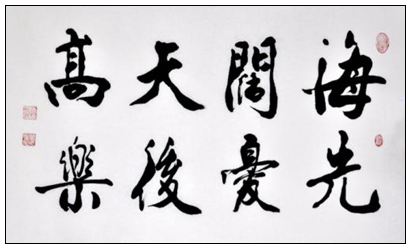 海闊天高
先憂後樂